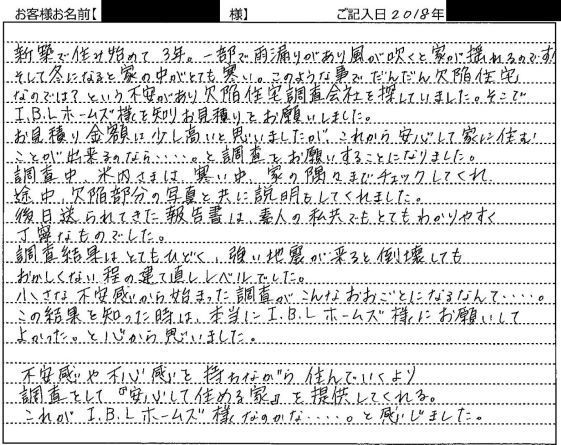 お客様お名前【 様】 ご記入日2018年
新築で住み始めて3年。一部で雨漏りがあり風が吹くと家が揺れるのです
そして冬になると家の中がとても寒い。このような事でだんだん欠陥住宅
なのでは?という不安があり欠陥住宅調査会社を探していました。そこで
I.B.Lホームズ様を知りお見積りをお願いしました。
お見積り金額は少し高いと思いましたが、これから安心して家に住む
ことが出来るのなら.....。と調査をお願いすることになりました。
調査中、米内さまは、寒い中、家の隅々までチェックしてくれ、
途中、欠陥部分の写真と共に説明をしてくれました。
後日送られてきた報告書は、素人の私共でもとてもわかりやすく
丁寧なものでした。
調査結果はとてもひどく、強い地震が来ると倒壊しても
おかしくない程の建て直しレベルでした。
小さな不安感から始まった調査がこんなおおごとになるなんて.....。
この結果を知った時は、本当にI.B.Lホームズ様にお願いして
よかった。と心から思いました。
不安感や不心感を持ちながら住んでいくより
調査をして『安心して住める家』を提供してくれる。
これがI.B.Lホームズ様なのかな.....。と感じました。